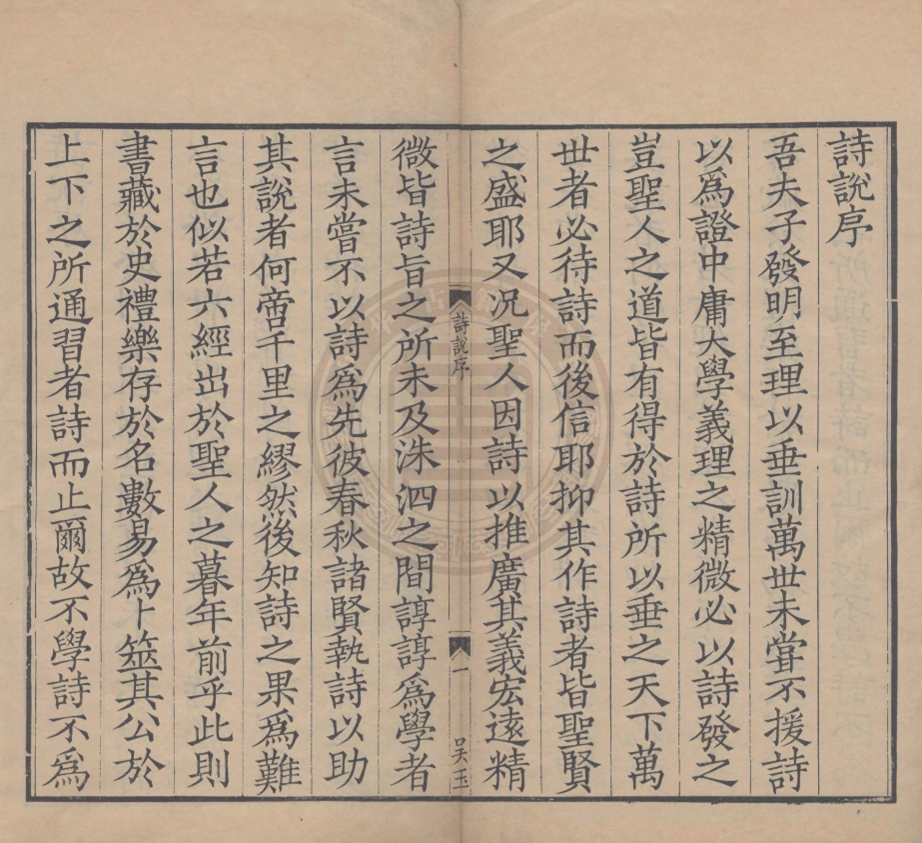 詩說序
吾夫子發明至理以垂訓萬世未甞不援詩
以爲證中庸大學義理之精微必以詩發之
豈聖人之道皆有得於詩所以垂之天下萬
世者必待詩而後信耶抑其作詩者皆聖賢
之盛耶又况聖人因詩以推廣其義宏遠精
詩說序
一
吴玉
微皆詩旨之所未及洙泗之間諄諄爲學者
言未嘗不以詩爲先彼春秋諸賢執詩以助
其說者何啻千里之繆然後知詩之果爲難
言也似若六經出於聖人之暮年前乎此則
書藏於史禮樂存於名數易爲卜筮其公於
上下之所通習者詩而止爾故不學詩不爲